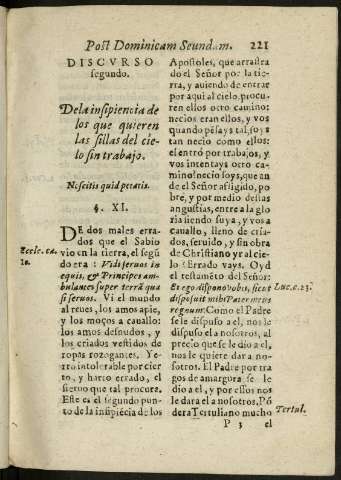 Post Dominicam Seundam. 221
DISCVRSO
segundo.
De la insipiencia de
los que quieren
las sillas del cie-
lo sin trabajo.
Nescitis quid petatis.
§. XI.
DE dos males erra-
dos que el Sabio
vio en la tierra, el segū
do era: Vidi seruos in
equis, & Principes am-
bulantes super terrā qua
si seruos. Vi el mundo
al reues, los amos a pie,
y los moços a cauallo:
los amos desnudos, y
los criados vestidos de
ropas rozogantes. Ye-
rro intolerable por cier
to, y harto errado, el
sieruo que tal procura.
Este es el segundo pun-
to de la insipiēcia de los
Eccle. ca.
10.
Apostoles, que arrastra
do el Señor por la tie-
rra, y auiendo de entrar
por aqui al cielo, procu-
ren ellos otro camino:
necios eran ellos, y vos
quando pēsays tal, soys
tan necio como ellos:
el entró por trabajos, y
vos intentays otro ca-
mino? necio soys, que an
de el Señor afligido, po
bre, y por medio destas
angustias, entre a la glo
ria siendo suya, y vos a
cauallo, lleno de cria-
dos, seruido, y sin obra
de Christiano yr al cie-
lo? Errado vays. Oyd
el testamēto del Señor:
Et ego dispono vobis, sicut
disposuit mihi Pater meus
regnum: Como el Padre
se le dispuso a el, nos le
dispuso el a nosotros, al
precio que se le dio a el,
nos le quiere dar a no-
sotros. El Padre por tra
gos de amargura se le
dio a el, y por ellos nos
le dara el a nosotros, Pō
dera Tertuliano mucho
Luc. c. 23.
Tertul.
P 3 el